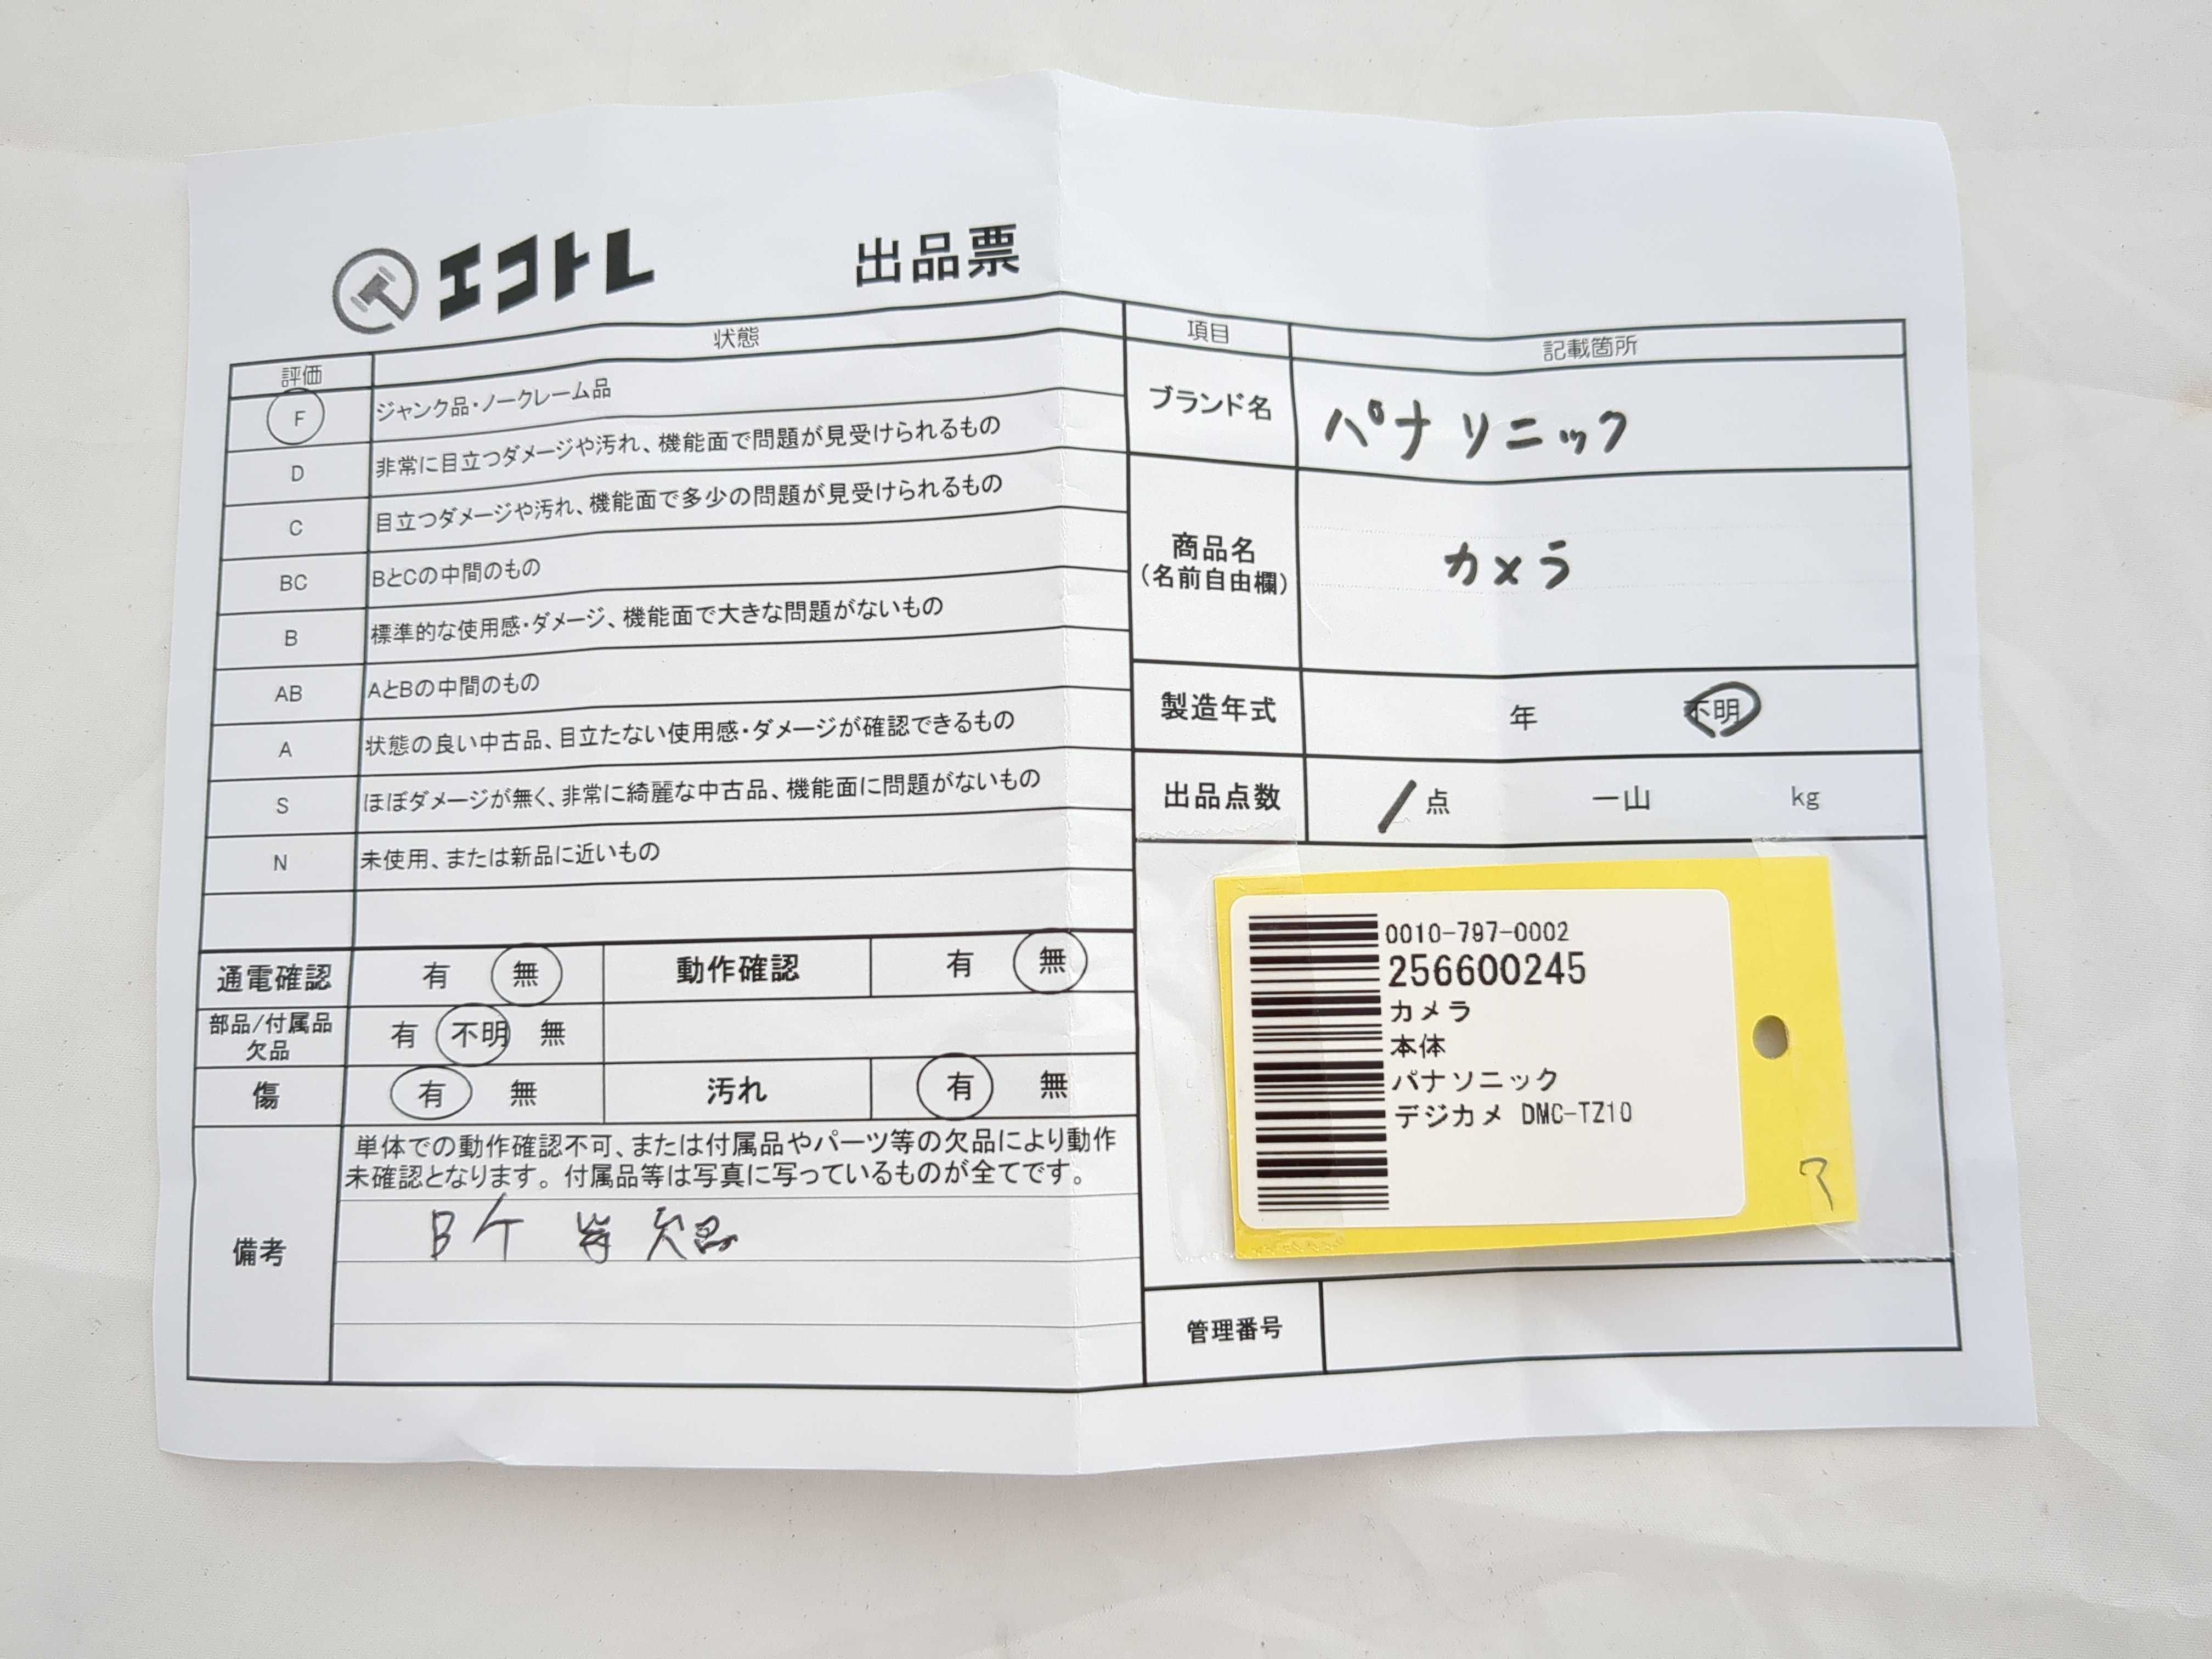 エコトレ 出品票
評価 状態
F ジャンク品・ノークレーム品
D 非常に目立つダメージや汚れ、機能面で問題が見受けられるもの
C 目立つダメージや汚れ、機能面で多少の問題が見受けられるもの
BC BとCの中間のもの
B 標準的な使用感・ダメージ、機能面で大きな問題がないもの
AB AとBの中間のもの
A 状態の良い中古品、目立たない使用感・ダメージが確認できるもの
S ほぼダメージが無く、非常に綺麗な中古品、機能面に問題がないもの
N 未使用、または新品に近いもの
通電確認 有 無 動作確認 有 無
部品/付属品
欠品
有 不明 無
傷 有 無 汚れ 有 無
備考
単体での動作確認不可、または付属品やパーツ等の欠品により動作
未確認となります。付属品等は写真に写っているものが全てです。
項目 記載箇所
ブランド名 パナソニック
商品名
(名前自由欄)
カメラ
製造年式 年 不明
出品点数 1点 一山 kg
0010-797-0002
256600245
カメラ
本体
パナソニック
デジカメ DMC-TZ10
管理番号